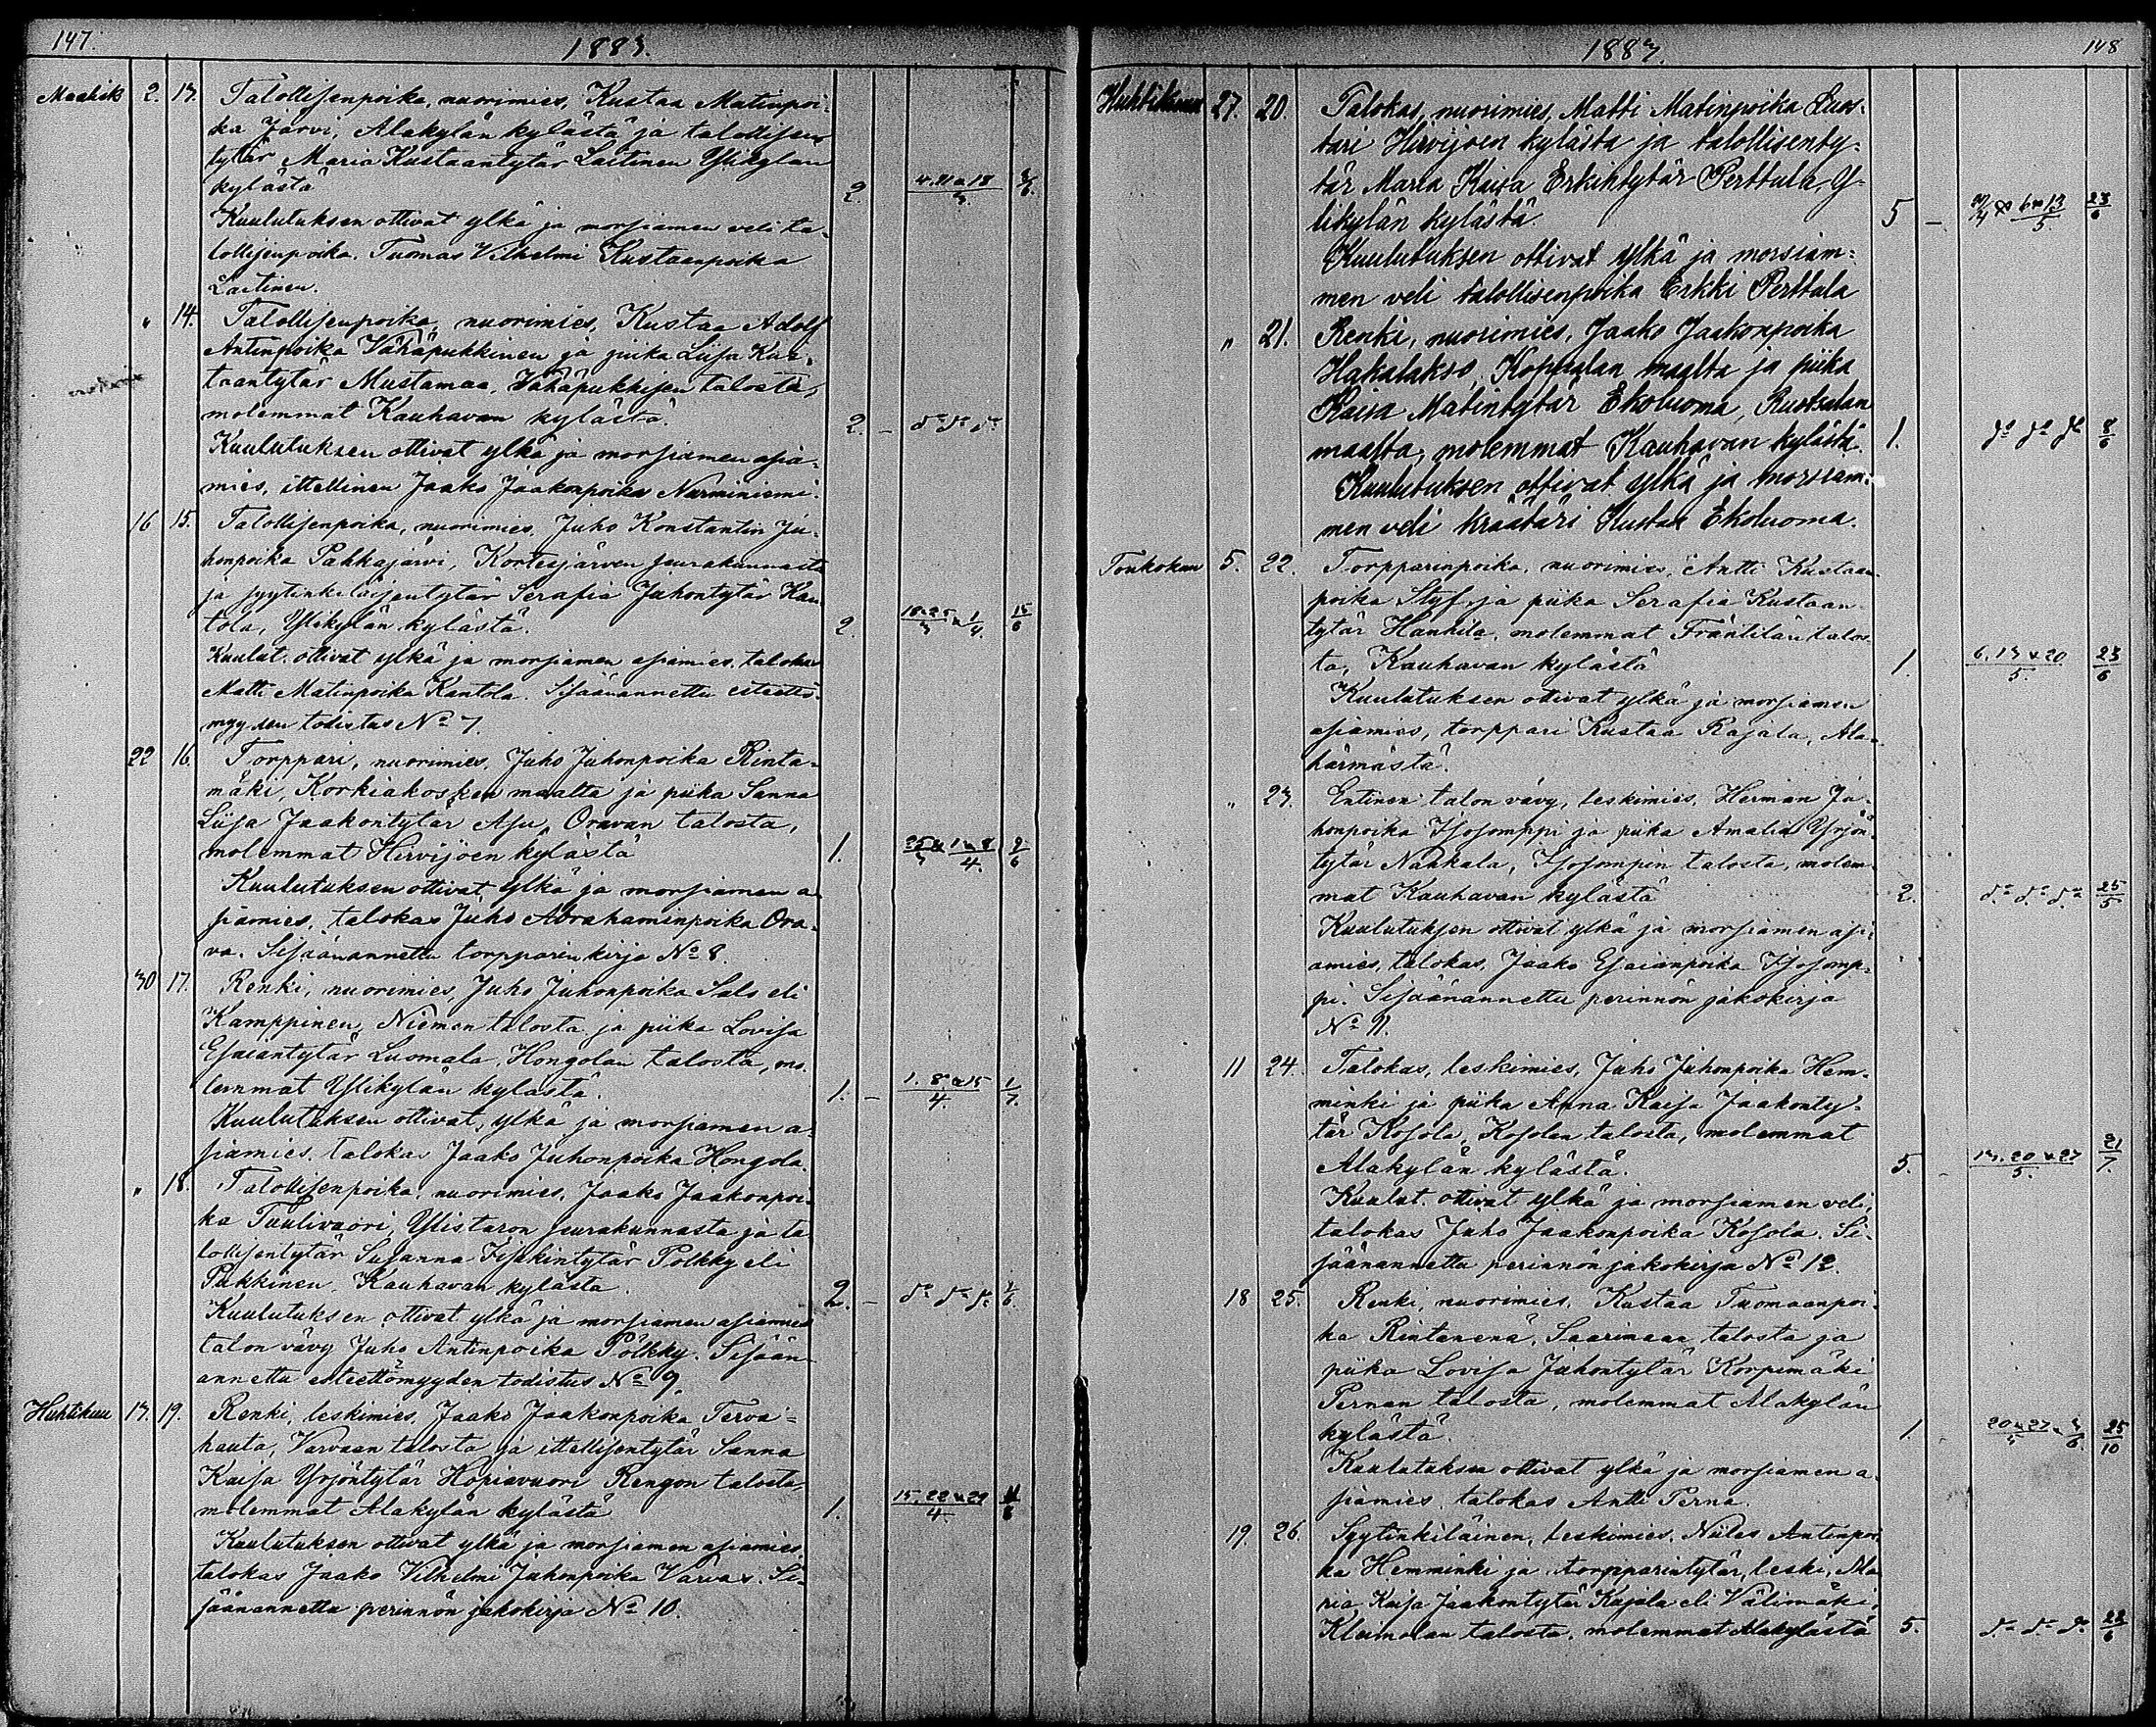 147.
1883.
Maalisk 2. 13. Talollisenpoika, nuorimies, Kustaa Matinpoi-
ka Järvi, Alakylän kylästä ja talollisen
tytär Maria Kustaantytär Laitinen Ylikylän
kylästä 2. 4. 11 a 18 / 3
Kuulutuksen ottivat ylkä ja morsiamen veli ta-
lollisenpoika Tuomas Vilhelmi Kustaanpoika
Laitinen.
" 14. Talollisenpoika, nuorimies, Kustaa Adolf
Antinpoika Vähäpukkinen ja piika Liisa Kus-
taantytär Mustamaa, Vähäpukkisen talosta,
molemmat Kauhavan kylästä. 2. - do do do
Kuulutuksen ottivat ylkä ja morsiamen asia-
mies, ittellinen Jaako Jaakonpoika Nurminiemi.
16 15. Talollisenpoika, nuorimies, Juho Konstantin Ju-
honpoika Pahkajärvi, Kortesjärven seurakunnasta
ja syytinkiläisentytär Serafia Juhontytär Kan-
tola, Ylikylän kylästä. 2. 18. 25 / 3 a 1 / 4. 15/6
Kuulut. ottivat ylkä ja morsiamen asiamies, talokas
Matti Matinpoika Kantola. Sisäänannettu esteettö-
myyden todistus No 7.
22 16. Torppari, nuorimies, Juho Juhonpoika Rinta-
mäki, Korkiakosken maalta ja piika Sanna
Liisa Jaakontytär Asu, Oravan talosta,
molemmat Hirvijoen kylästä 1. 25/3 a 1 a 8 / 4. 2/6
Kuulutuksen ottivat ylkä ja morsiamen a-
siamies, talokas Juho Abrahaminpoika Ora-
va. Sisäänannettu torpparin kirja No 8.
30 17. Renki, nuorimies, Juho Juhonpoika Salo eli
Kamppinen, Niemen talosta ja piika Lovisa
Esaiantytär Luomala, Hongolan talosta, mo-
lemmat Ylikylän kylästä. 1. - 1. 8 a 15 / 4. 1/7
Kuulutuksen ottivat, ylkä ja morsiamen a-
siamies, talokas Jaako Juhonpoika Hongola.
" 18. Talollisenpoika, nuorimies, Jaako Jaakonpoi-
ka Tuulivuori, Ylistaron seurakunnasta ja ta-
lollisentytär Susanna Iisakintytär Polkky eli
Pukkinen, Kauhavan kylästä. 2. - do do do
Kuulutuksen ottivat ylkä ja morsiamen asiamies
talon vävy Juho Antinpoika Pölkky. Sisään
annettu esteettömyyden todistus No 9.
Huhtikuu 13. 19. Renki, leskimies, Jaako Jaakonpoika Terva-
hauta, Varvaan talosta ja ittellisentytär Sanna
Kaisa Yrjöntytär Hopiavuori Rengon talosta,
molemmat Alakylän kylästä 1. 15. 22 a 29 / 4.
Kuulutuksen ottivat ylkä ja morsiamen asiamies,
talokas Jaako Vilhelmi Juhonpoika Varvas. Si-
säänannettu perinnön jakokirja No 10.
1883.
148
Huhtikuu 27. 20. Talokas, nuorimies, Matti Matinpoika Luos-
tari Hirvijoen kylästä ja talollisenty-
tär Maria Kaisa Erkintytär Perttula, Y-
likylän kylästä. 5 - 6 a 13 / 5. 23/6
Kuulutuksen ottivat ylkä ja morsiam-
men veli talollisenpoika Erkki Perttula
" 21. Renki, nuorimies, Jaako Jaakonpoika
Hakalakso, Koppalan maalta ja piika
Kaisa Matintytär Ekoluoma, Ruotsalan
maalta, molemmat Kauhavan kylästä. 1. do do do 8/6
Kuulutuksen ottivat ylkä ja morsiam-
men veli kräätäri Kustaa Ekoluoma.
Toukokuu 5. 22. Torpparinpoika, nuorimies, Antti Kustaan-
poika Styf ja piika Serafia Kustaan-
tytär Hanhila, molemmat Fräntilän talos-
ta, Kauhavan kylästä 1. 6. 13 a 20 / 5. 23/6
Kuulutuksen ottivat ylkä ja morsiamen
asiamies, torppari Kustaa Rajala, Ala-
härmästä.
" 23. Entinen talon vävy, leskimies, Herman Ju-
honpoika Isosomppi ja piika Amalia Yrjön-
tytär Naakala, Isosompin talosta, molem-
mat Kauhavan kylästä 2. do do do 25/5
Kuulutuksen ottivat ylkä ja morsiamen asi-
amies, talokas, Jaako Esaianpoika Isosomp-
pi. Sisäänannettu perinnön jakokirja
No 11.
11 24. Talokas, leskimies, Juho Juhonpoika Hem-
minki ja piika Anna Kaisa Jaakonty-
tär Kosola, Kosolan talosta, molemmat
Alakylän kylästä. 5. - 13. 20 a 27 / 5. 21/7.
Kuulut. ottivat ylkä ja morsiamen veli,
talokas Juho Jaakonpoika Kosola. Si-
säänannettu perinnön jakokirja No 12.
18 25. Renki, nuorimies, Kustaa Tuomaanpoi-
ka Rintanenä, Saarimaan talosta ja
piika Lovisa Juhontytär Korpimäki
Pernan talosta, molemmat Alakylän
kylästä. 1. 20 a 27 / 5 a 3/6. 25/10
Kuulutuksen ottivat ylkä ja morsiamen a-
siamies, talokas Antti Perna.
19. 26. Syytinkiläinen, leskimies, Niiles Antinpoi-
ka Hemminki ja torpparintytär, leski, Ma-
ria Kaisa Jaakontytär Kajala eli Välimäki,
Kleimolan talosta, molemmat Alakylästä 5. do do do 22/6